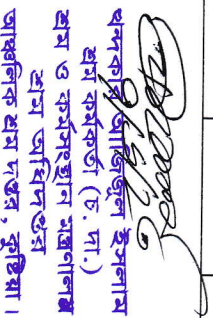 ইসলাম
শ্রম কর্মকর্তা (চ. দা.)
শ্রম ও কর্মসংস্থান মন্ত্রণালয়
শ্রম অধিদপ্তর
আঞ্চলিক শ্রম দপ্তর, কুষ্টিয়া।